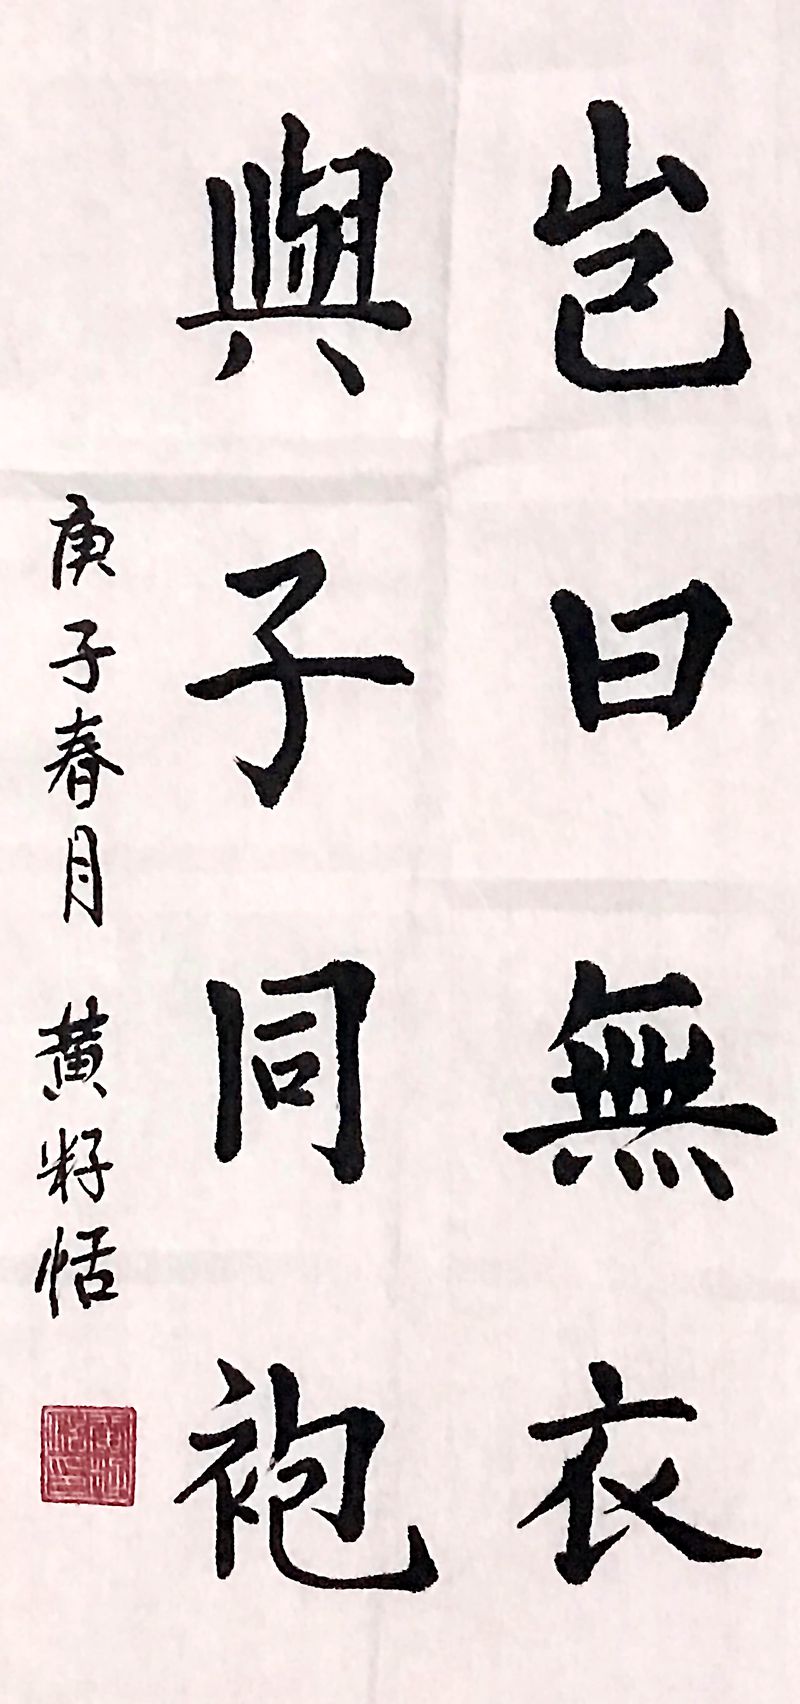 岂曰無衣
與子同袍
庚子春月 黄籽恬